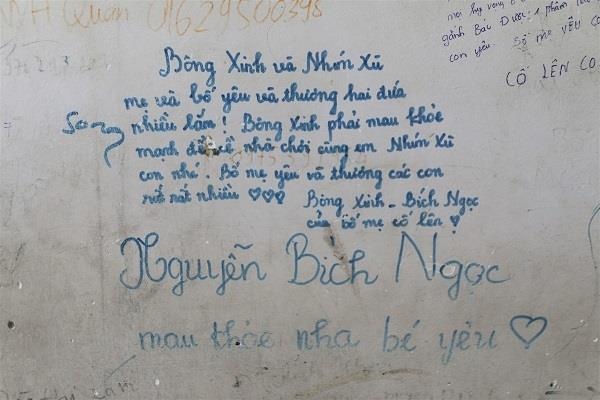 NH Quân 01629500398
mọi hy vọng ở
gánh Bác Được 1 phần
con yêu. Số mẹ yêu co
CỐ LÊN CO
Bông Xinh và Nhím Xù
mẹ và bố yêu và thương hai đứa
nhiều lắm! Bông Xinh phải mau khỏe
mạnh để về nhà chơi cùng em Nhím Xù
con nhé. Bố mẹ yêu và thương các con
rất rất nhiều ♡♡♡
Bông Xinh - Bích Ngọc
của bố mẹ cố lên ♡
Nguyễn Bích Ngọc
mau khỏe nha bé yêu ♡